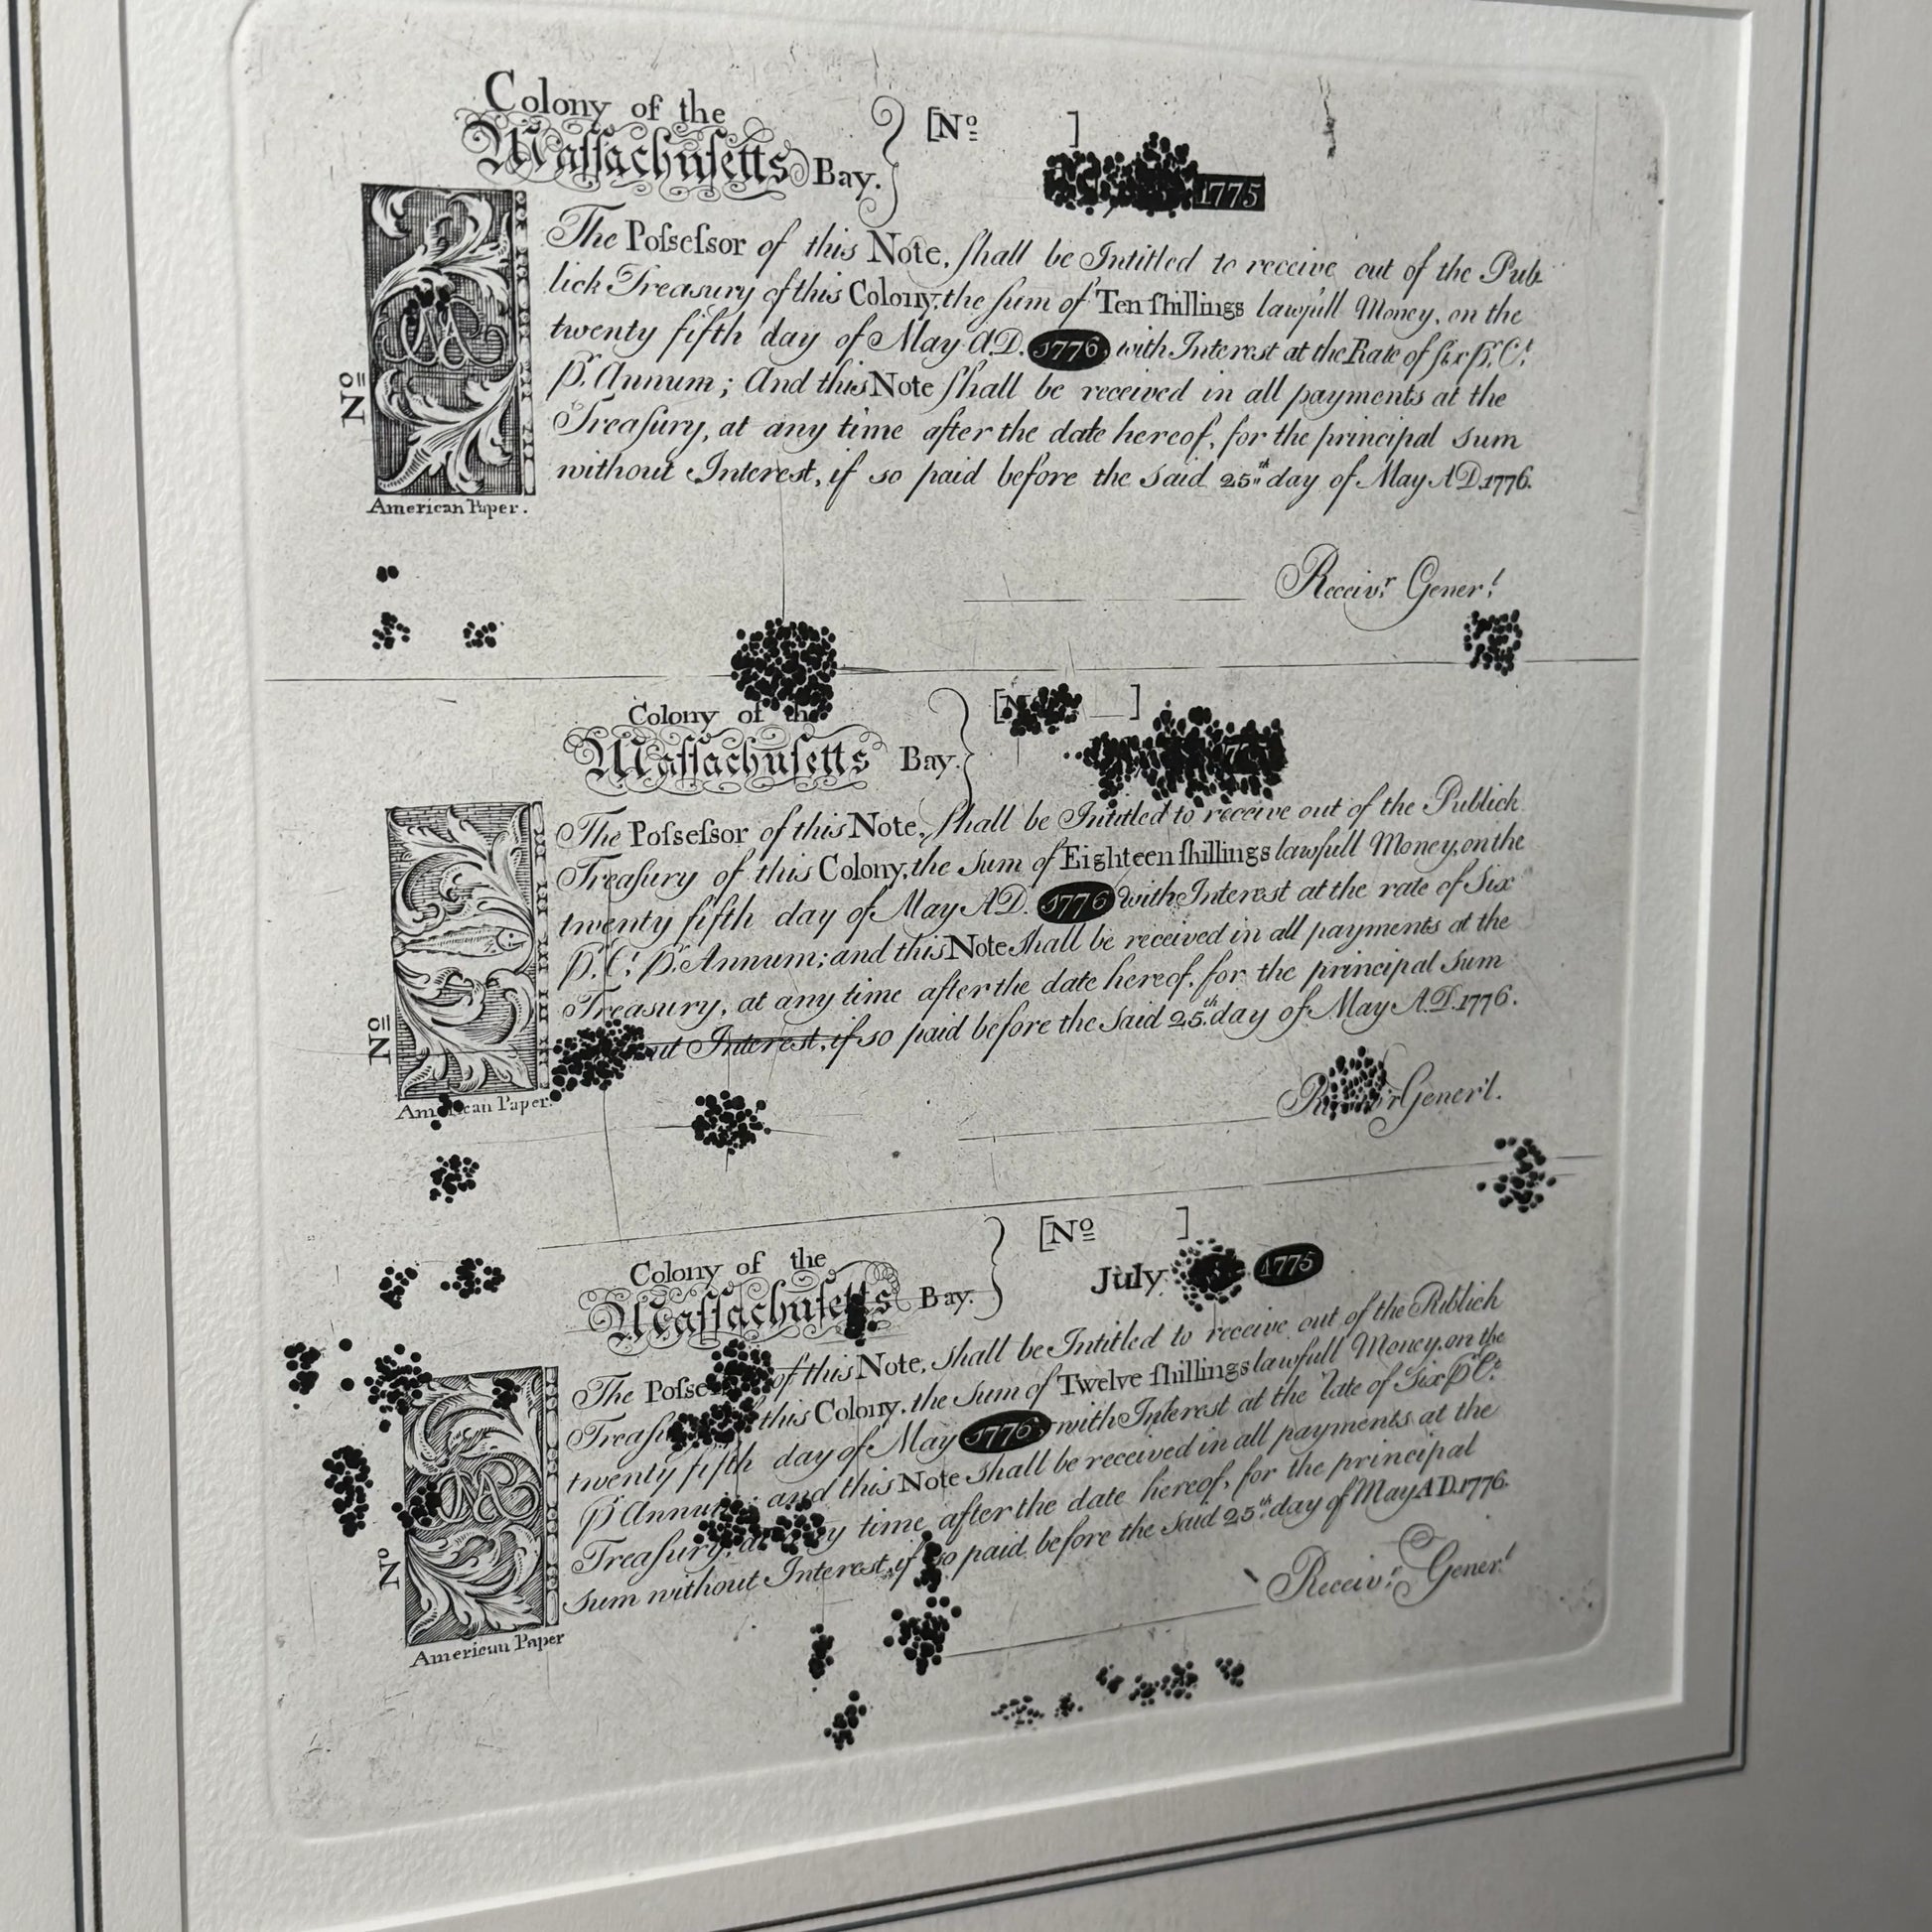 Colony of the
Maſſachuſetts Bay.
[Nº ]
1775
The Poſseſsor of this Note, ſhall be Intitled to receive out of the Pub-
lick Treasury of this Colony, the ſum of Ten ſhillings lawfull Money, on the
twenty fifth day of May A.D. 1776 with Interest at the Rate of ſix P. Ct.
P. Annum; And this Note ſhall be received in all payments at the
Treaſury, at any time after the date hereof, for the principal Sum
without Interest, if so paid before the Said 25th day of May A D. 1776.
Nº
American Paper.
Receivr. Generl.
Colony of the
Maſſachuſetts Bay.
The Poſseſsor of this Note, ſhall be Intitled to receive out of the Publick
Treaſury of this Colony, the Sum of Eighteen ſhillings lawfull Money, on the
twenty fifth day of May A.D. 1776 with Interest at the rate of Six
P. Ct. P. Annum; and this Note Shall be received in all payments at the
Treasury, at any time after the date hereof, for the principal Sum
Interest, if so paid before the Said 25th. day of May A.D. 1776.
Nº
American Paper.
Generl.
Colony of the
Maſſachuſetts Bay.
[Nº ]
July 1775
The of this Note, shall be Intitled to receive out of the Publick
this Colony, the Sum of Twelve ſhillings lawfull Money, on the
twenty fifth day of May 1776 with Interest at the rate of Six P Ct.
P Annum; and this Note Shall be received in all payments at the
Treaſury, time after the date hereof, for the principal
Sum without Interest, if so paid before the Said 25th. day of May A D. 1776.
Nº
American Paper
Receivr. Generl.